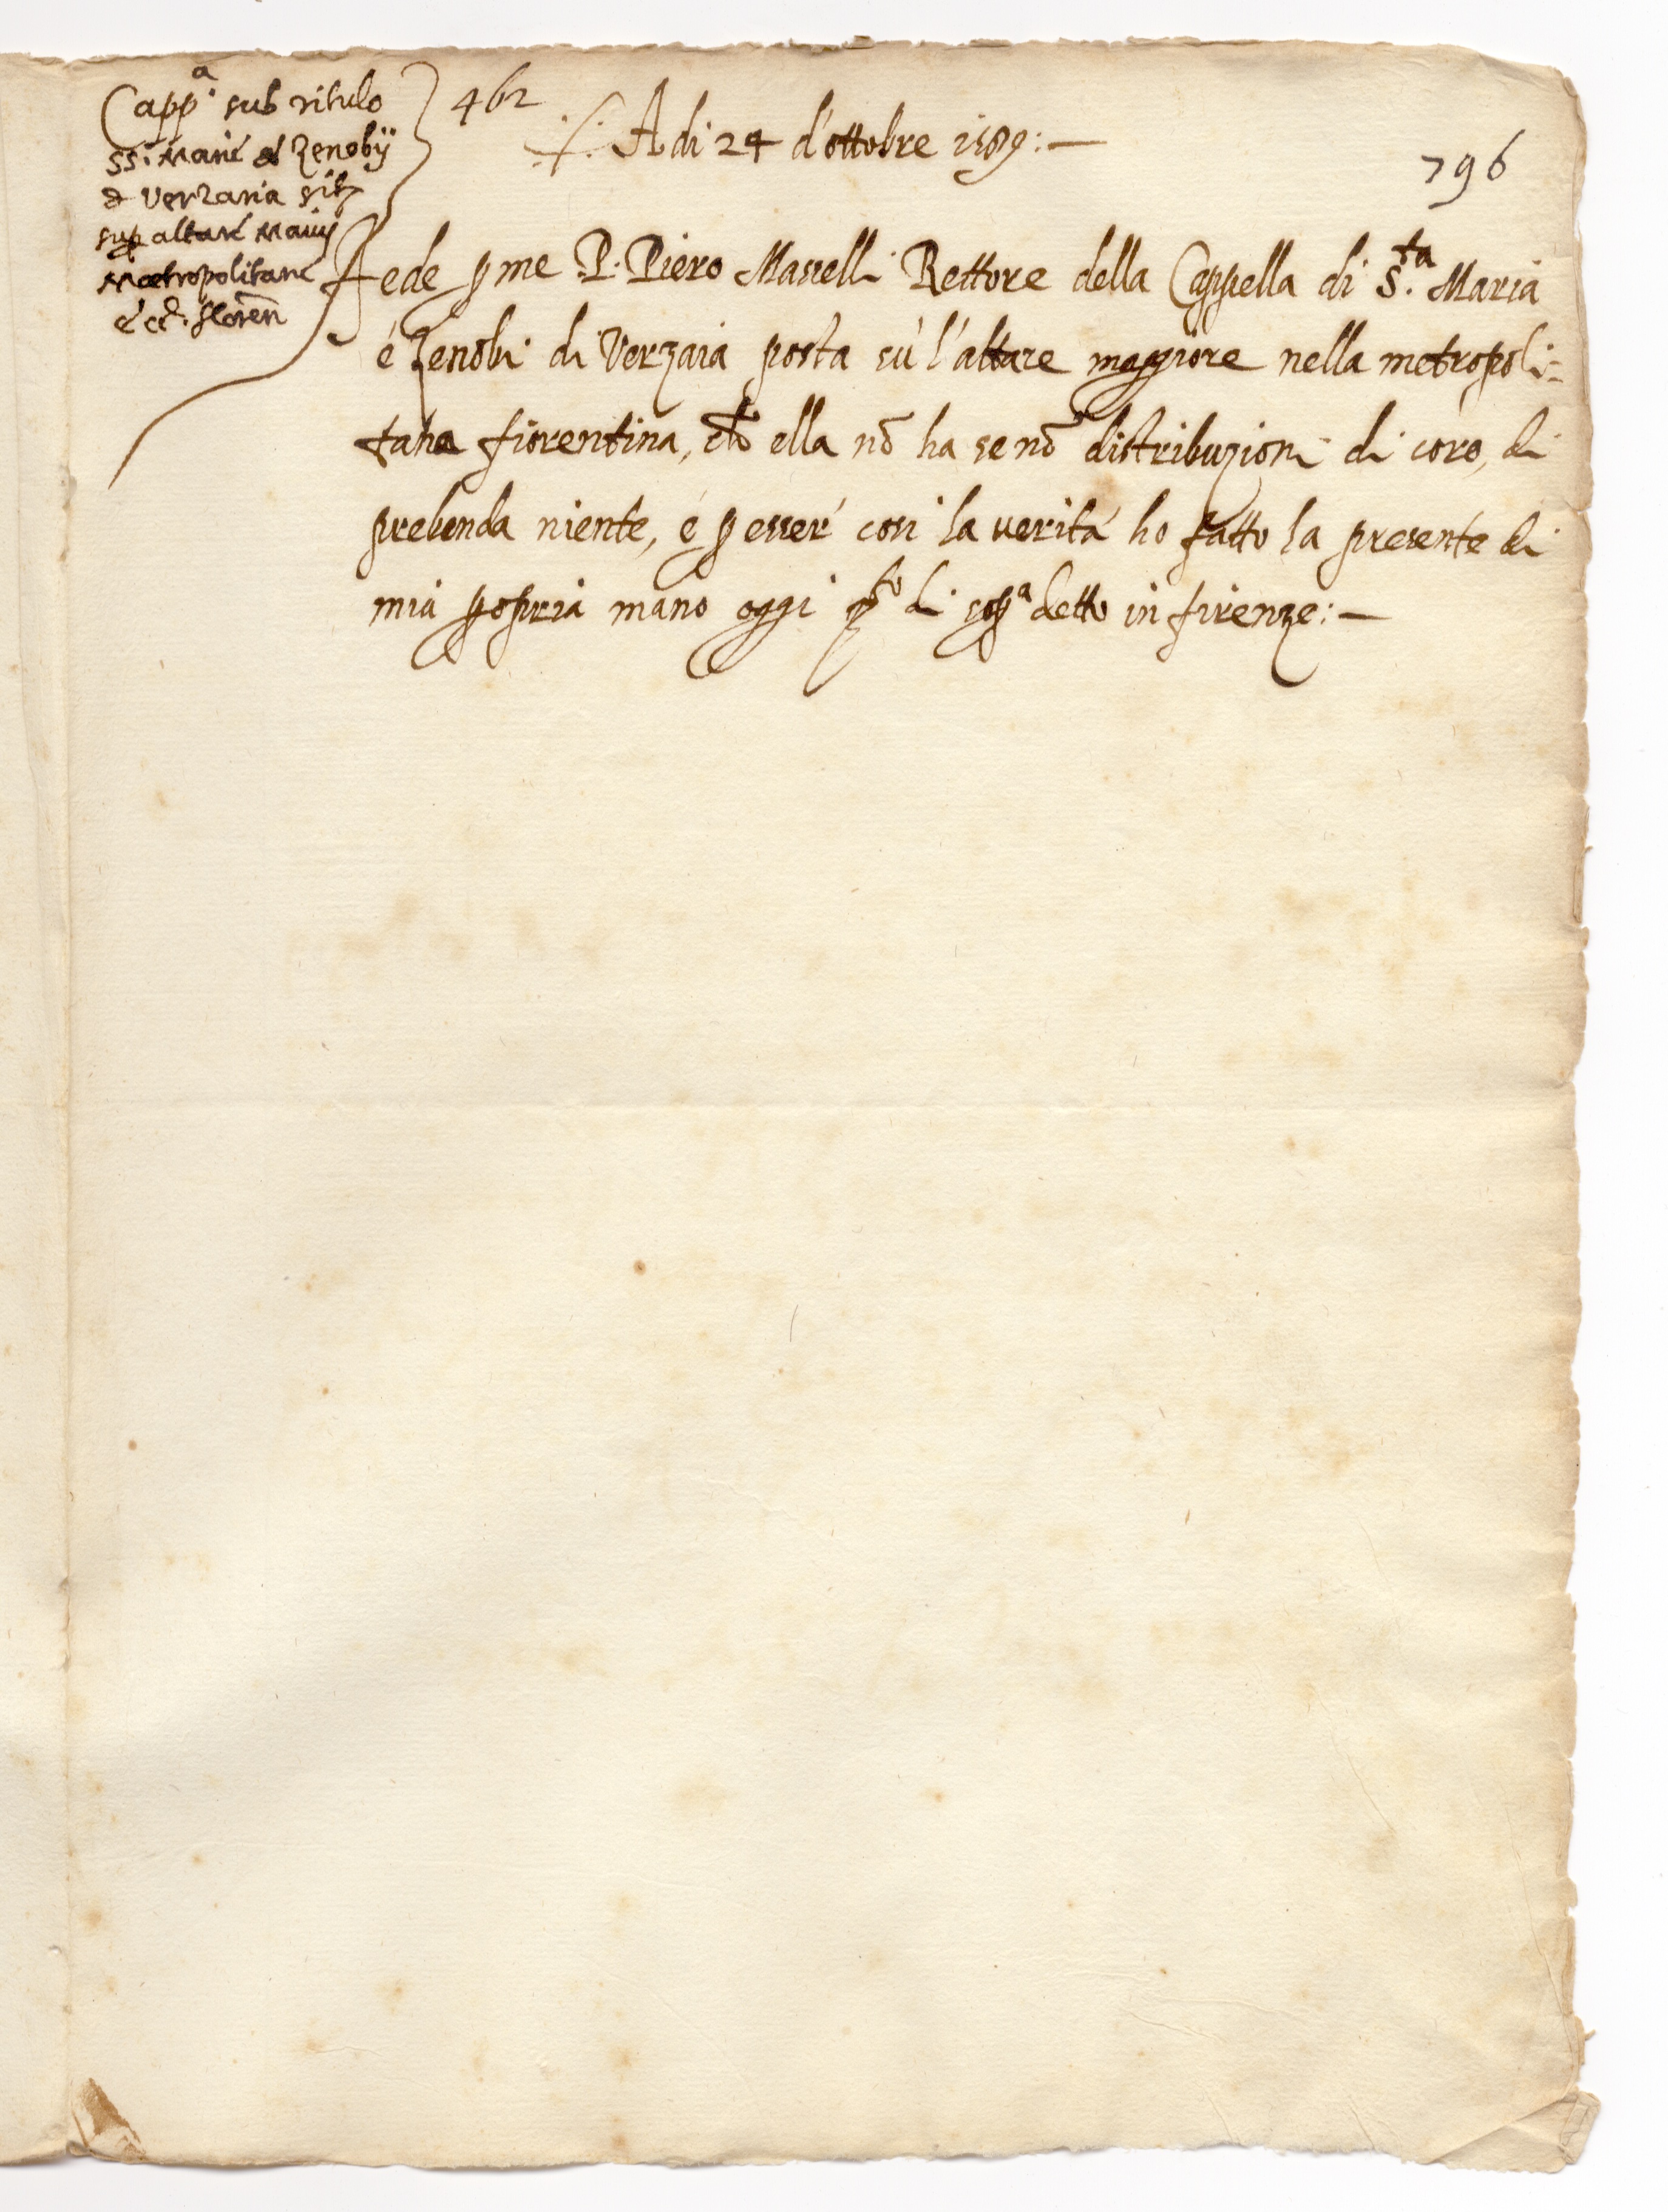 Capp.a sub titulo
SS. Marie et Zenobij
d Verzaria sit
sup altare Maius
Metropolitane
ecc. floren
462
A di 24 d'ottobre 1589:—
796
Fede p me P. Piero Mascelli Rettore della Cappella di S.ta Maria
é Zenobi di Verzaia posta sù l'altare maggiore nella metropoli=
tana fiorentina, che ella nō ha se nō distribuzioni di coro, di
prebenda niente, é p esser cosi la verità ho fatto la presente di
mia propria mano oggi di sop.a detto in firenze:—